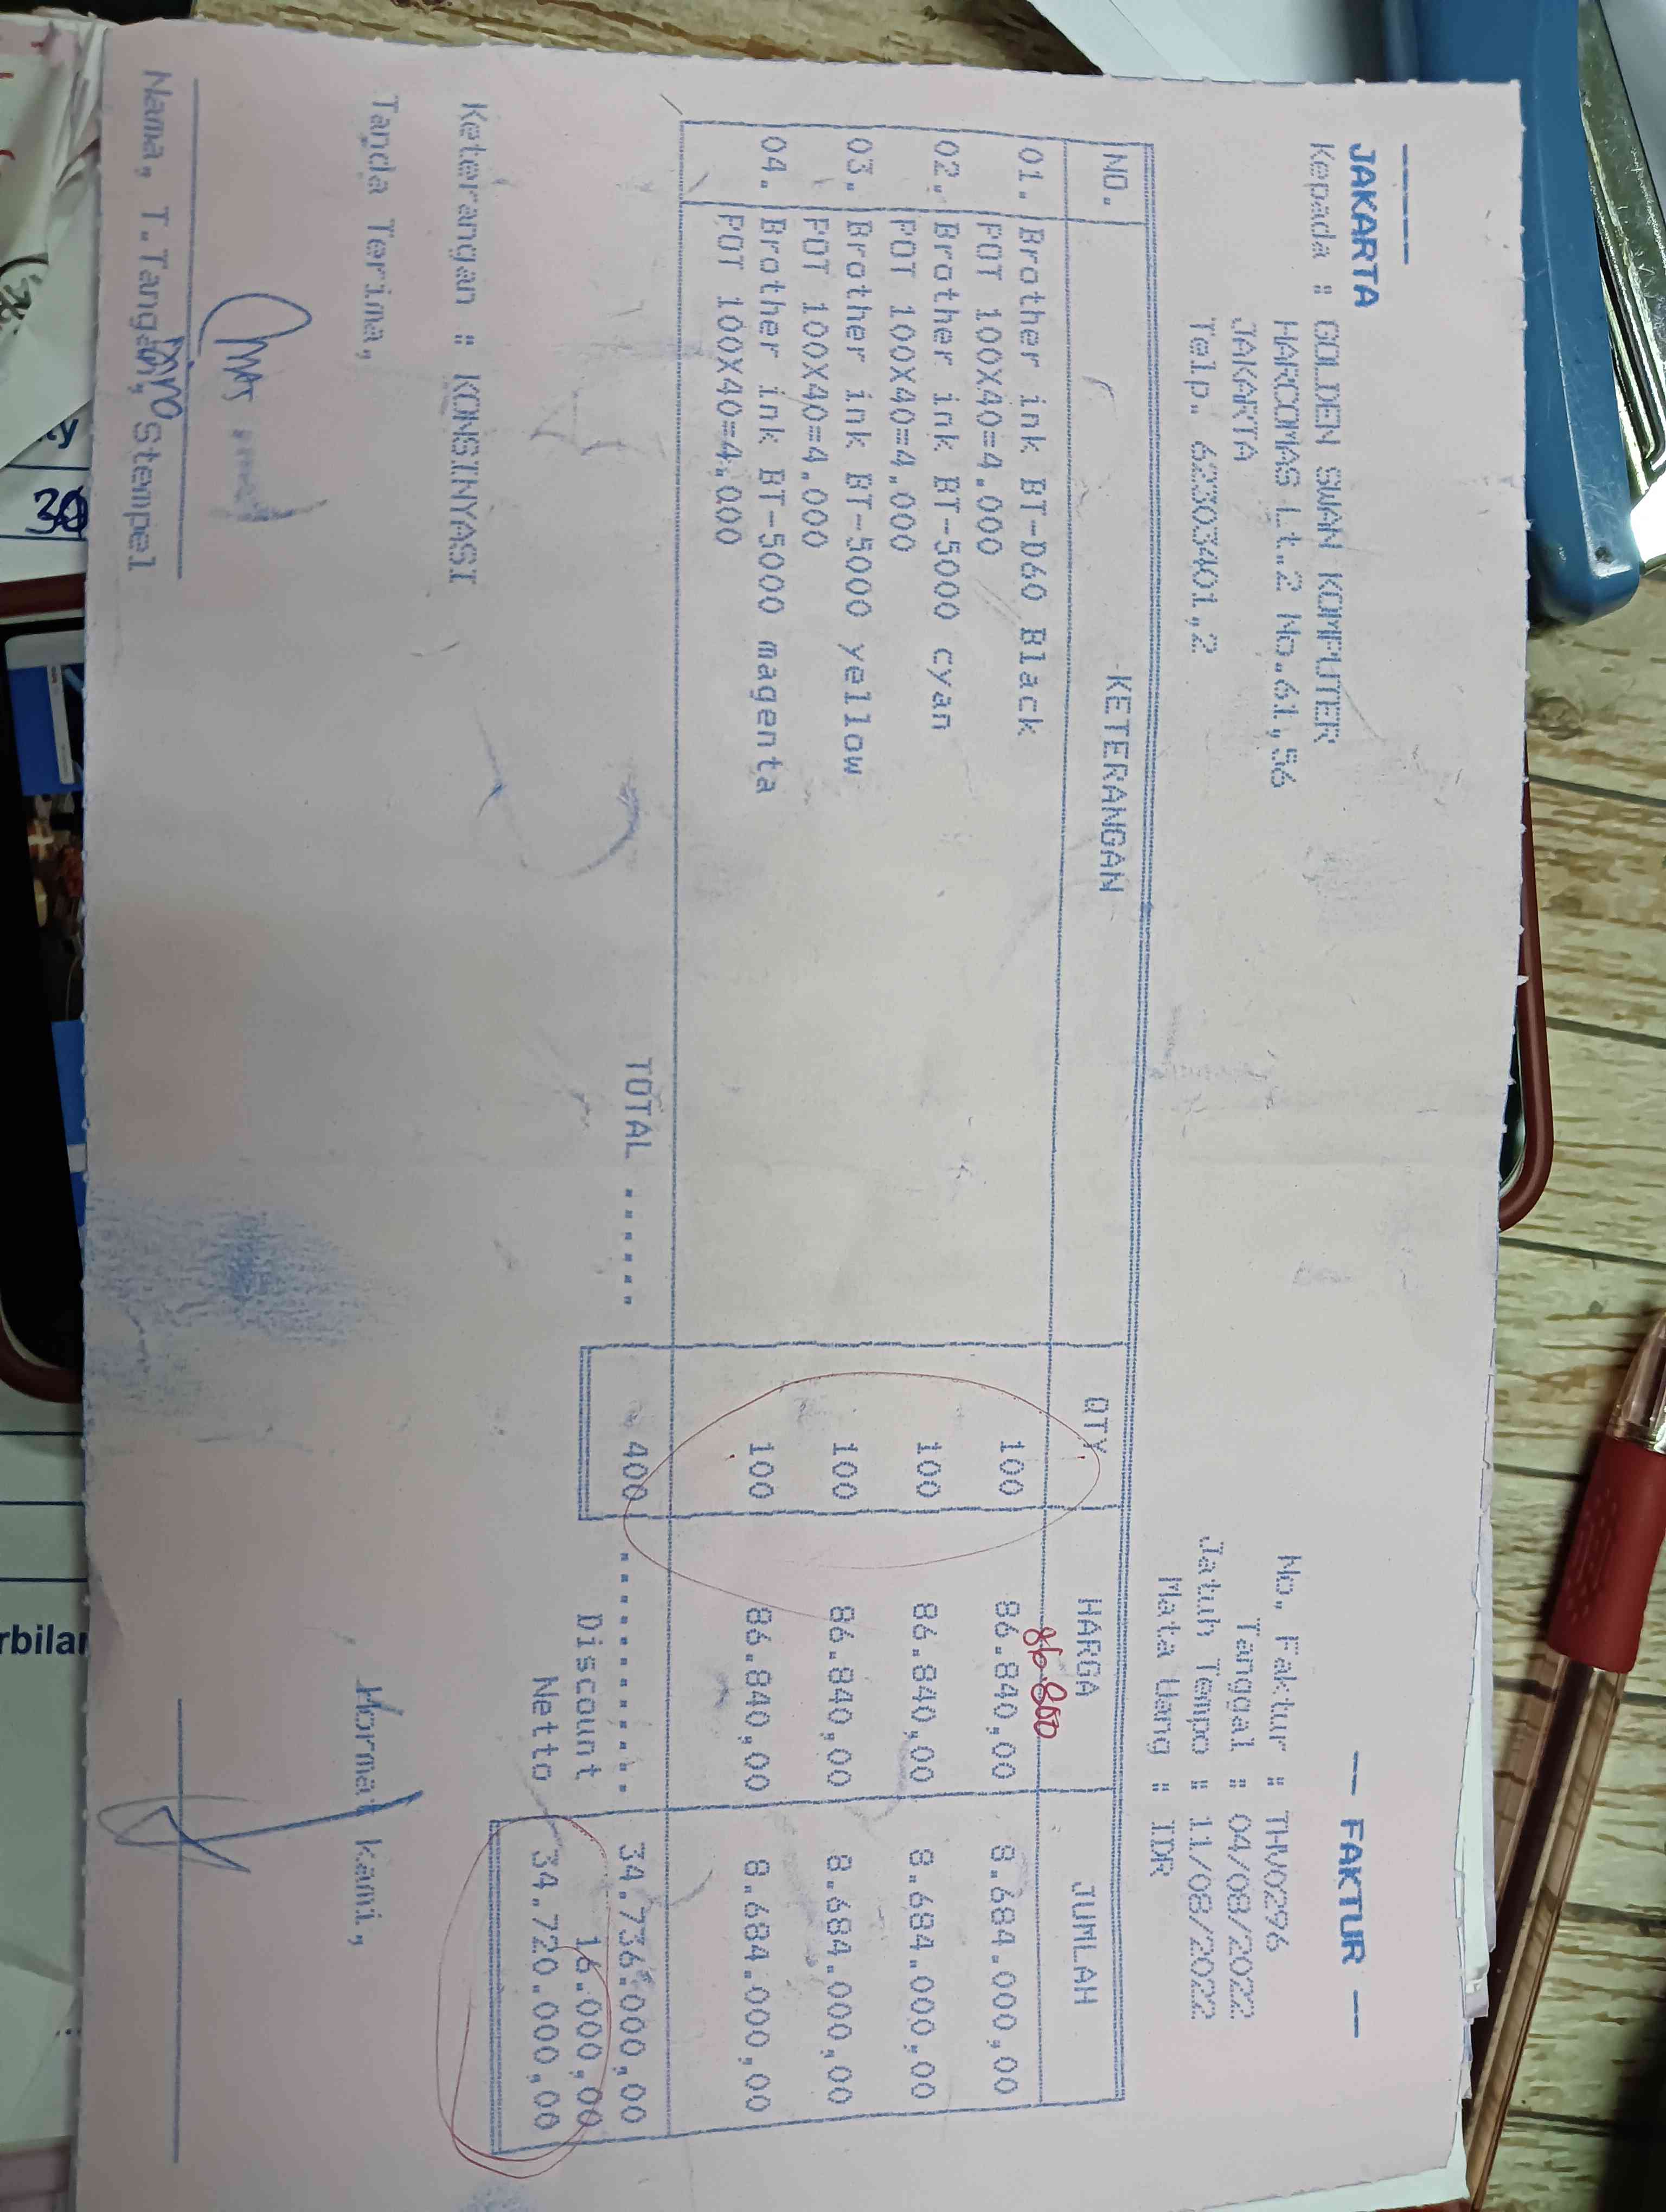 -- FAKTUR --
JAKARTA
Kepada : GOLDEN SWAN KOMPUTER
HARCOMAS Lt.2 No.61,56
JAKARTA
Telp. 62303401,2
No. Faktur : THV0296
Tanggal : 04/08/2022
Jatuh Tempo : 11/08/2022
Mata Uang : IDR
NO. KETERANGAN QTY HARGA JUMLAH
86.800
01. Brother ink BT-D60 Black 100 86.840,00 8.684.000,00
POT 100X40=4.000
02. Brother ink BT-5000 cyan 100 86.840,00 8.684.000,00
POT 100X40=4.000
03. Brother ink BT-5000 yellow 100 86.840,00 8.684.000,00
POT 100X40=4.000
04. Brother ink BT-5000 magenta 100 86.840,00 8.684.000,00
POT 100X40=4.000
TOTAL ...... 400 ............ 34.736.000,00
Discount 16.000,00
Netto 34.720.000,00
Keterangan : KONSINYASI
Tanda Terima,
Hormat kami,
Nama, T.Tangan, Stempel
30
rbilan